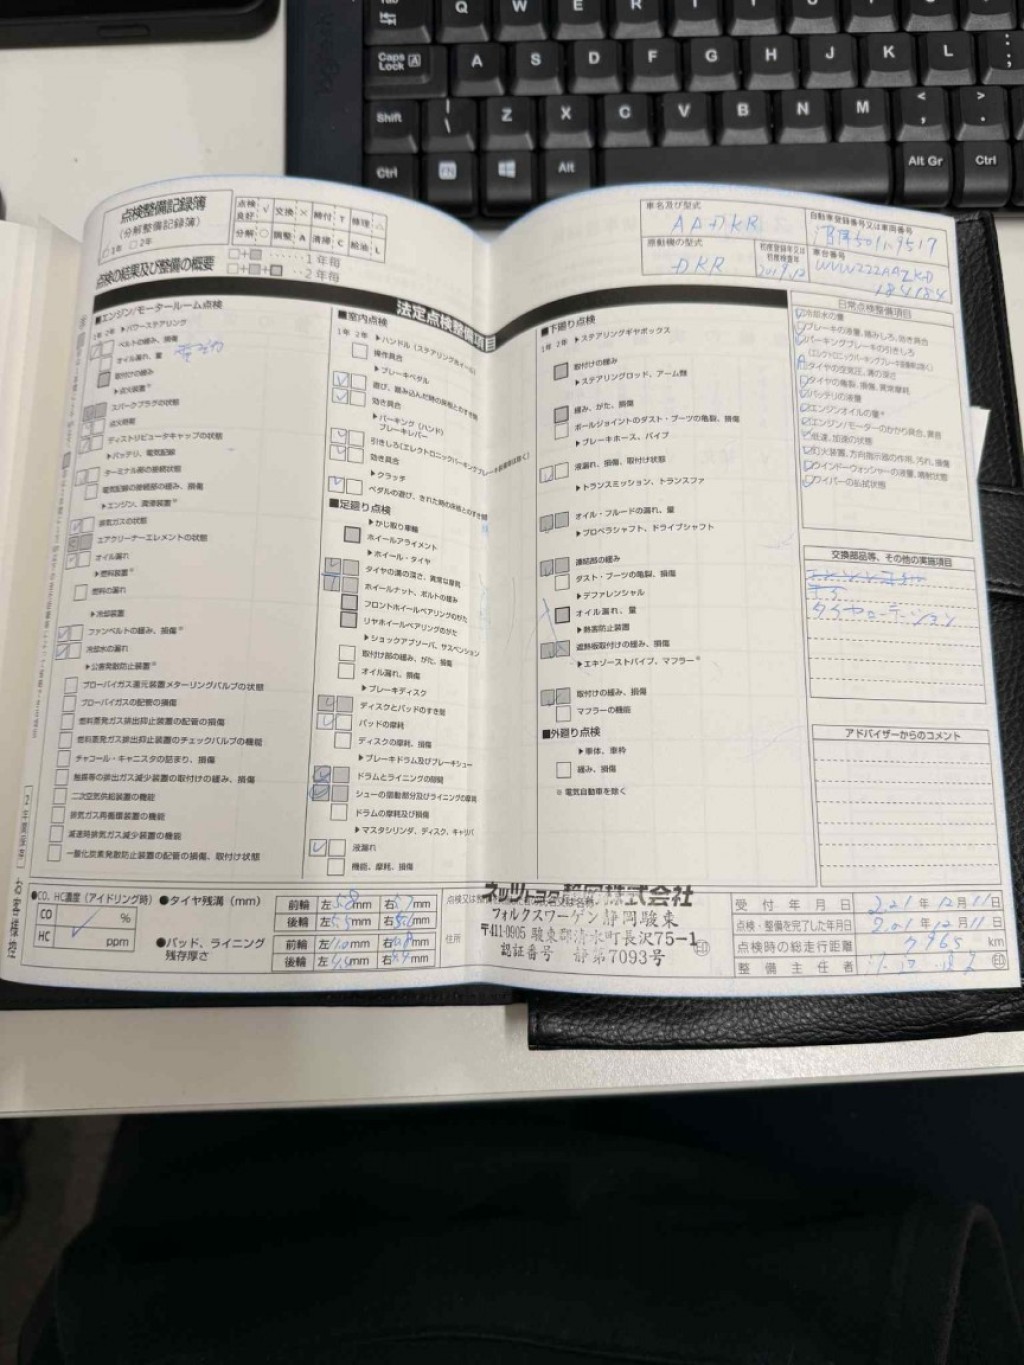 Q W E R T Y U I O P
Caps Lock A A S D F G H J K L
Shift Z X C V B N M
Ctrl FN Alt Alt Gr Ctrl
点検整備記録簿
(分解整備記録簿)
1年 2年
点検良好 レ 交換 × 締付 T 修理 △
分解 ○ 調整 A 清掃 C 給油 L
点検の結果及び整備の概要
1年毎
2年毎
車名及び型式
AADKR
原動機の型式
DKR
初度登録年又は初度検査年
自動車登録番号又は車両番号
501
9517
車台番号
WVWZZZAAZKD
184184
法定点検整備項目
■エンジン/モータールーム点検
1年 2年
▶パワーステアリング
ベルトの緩み、損傷
オイル漏れ、量
取付けの緩み
▶点火装置※
スパークプラグの状態
点火時期
ディストリビュータキャップの状態
▶バッテリ、電気配線
ターミナル部の接続状態
電気配線の接続部の緩み、損傷
▶エンジン、潤滑装置※
排気ガスの状態
エアクリーナーエレメントの状態
オイル漏れ
▶燃料装置※
燃料の漏れ
▶冷却装置
ファンベルトの緩み、損傷※
冷却水の漏れ
▶公害発散防止装置※
ブローバイガス還元装置メターリングバルブの状態
ブローバイガスの配管の損傷
燃料蒸発ガス排出抑止装置の配管の損傷
燃料蒸発ガス排出抑止装置のチェックバルブの機能
チャコール・キャニスタの詰まり、損傷
触媒等の排出ガス減少装置の取付けの緩み、損傷
二次空気供給装置の機能
排気ガス再循環装置の機能
減速時排気ガス減少装置の機能
一酸化炭素発散防止装置の配管の損傷、取付け状態
■室内点検
1年 2年
▶ハンドル(ステアリングホイール)
操作具合
▶ブレーキペダル
遊び、踏み込んだ時の床板とのすき間
効き具合
▶パーキング(ハンド)
ブレーキレバー
引きしろ(エレクトロニックパーキングブレーキ装着車は除く)
効き具合
▶クラッチ
ペダルの遊び、きれた時の床板とのすき間
■足廻り点検
▶かじ取り車輪
ホイールアライメント
▶ホイール・タイヤ
タイヤの溝の深さ、異常な摩耗
ホイールナット、ボルトの緩み
フロントホイールベアリングのがた
リヤホイールベアリングのがた
▶ショックアブソーバ、サスペンション
取付け部の緩み、がた、損傷
オイル漏れ、損傷
▶ブレーキディスク
ディスクとパッドのすき間
パッドの摩耗
ディスクの摩耗、損傷
▶ブレーキドラム及びブレーキシュー
ドラムとライニングの隙間
シューの摺動部分及びライニングの摩耗
ドラムの摩耗及び損傷
▶マスタシリンダ、ディスク、キャリパ
液漏れ
機能、摩耗、損傷
■下廻り点検
1年 2年
▶ステアリングギヤボックス
取付けの緩み
▶ステアリングロッド、アーム類
緩み、がた、損傷
ボールジョイントのダスト・ブーツの亀裂、損傷
▶ブレーキホース、パイプ
液漏れ、損傷、取付け状態
▶トランスミッション、トランスファ
オイル・フルードの漏れ、量
▶プロペラシャフト、ドライブシャフト
連結部の緩み
ダスト・ブーツの亀裂、損傷
▶デファレンシャル
オイル漏れ、量
▶熱害防止装置
遮熱板取付けの緩み、損傷
▶エキゾーストパイプ、マフラー※
取付けの緩み、損傷
マフラーの機能
■外廻り点検
▶車体、車枠
緩み、損傷
※電気自動車を除く
日常点検整備項目
冷却水の量
ブレーキの液量、踏みしろ、効き具合
パーキングブレーキの引きしろ
(エレクトロニックパーキングブレーキ装着車は除く)
タイヤの空気圧、溝の深さ
タイヤの亀裂、損傷、異常摩耗
バッテリの液量
エンジンオイルの量※
エンジン/モーターのかかり具合、異音
低速、加速の状態
灯火装置、方向指示器の作用、汚れ、損傷
ウインドーウォッシャーの液量、噴射状態
ワイパーの払拭状態
交換部品等、その他の実施項目
タイヤローテーション
アドバイザーからのコメント
2年間定車
お客様控
●CO、HC濃度(アイドリング時)
CO %
HC ppm
●タイヤ残溝(mm)
前輪 左5.8mm 右5.7mm
後輪 左5.5mm 右5.6mm
●パッド、ライニング残存厚さ
前輪 左11.0mm 右mm
後輪 左mm 右mm
住所
ネッツトヨタ静岡株式会社
フォルクスワーゲン静岡駿東
〒411-0905 駿東郡清水町長沢75-1
認証番号 静第7093号
受付年月日 2021年12月11日
点検・整備を完了した年月日 2021年12月11日
点検時の総走行距離 7965 km
整備主任者 印